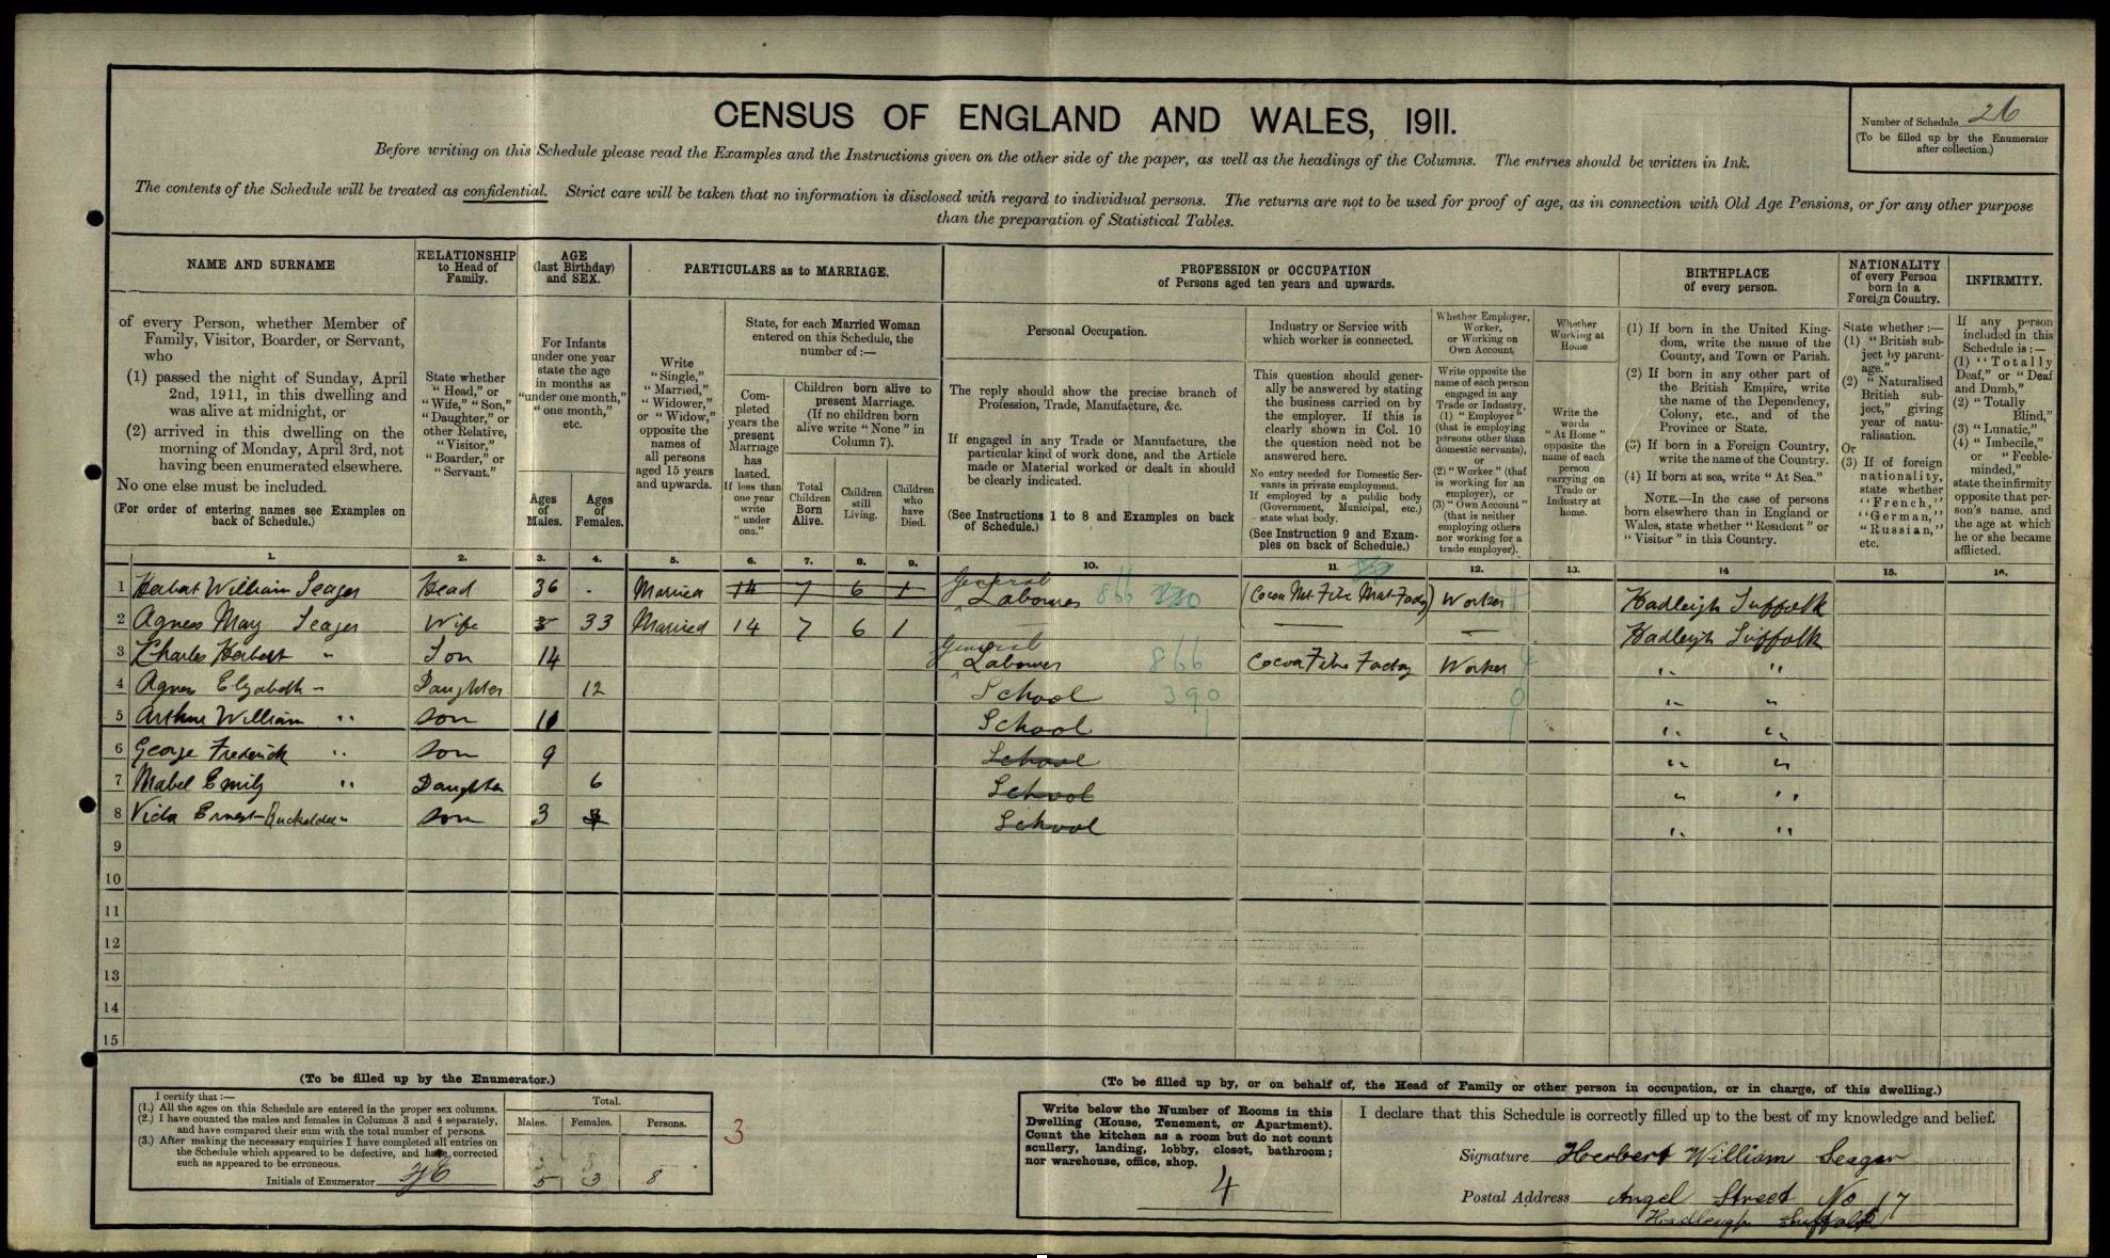 CENSUS OF ENGLAND AND WALES, 1911.
Number of Schedule 26
(To be filled up by the Enumerator
after collection.)
Before writing on this Schedule please read the Examples and the Instructions given on the other side of the paper, as well as the headings of the Columns. The entries should be written in Ink.
The contents of the Schedule will be treated as confidential. Strict care will be taken that no information is disclosed with regard to individual persons. The returns are not to be used for proof of age, as in connection with Old Age Pensions, or for any other purpose
than the preparation of Statistical Tables.
NAME AND SURNAME
of every Person, whether Member of
Family, Visitor, Boarder, or Servant,
who
(1) passed the night of Sunday, April
2nd, 1911, in this dwelling and
was alive at midnight, or
(2) arrived in this dwelling on the
morning of Monday, April 3rd, not
having been enumerated elsewhere.
No one else must be included.
(For order of entering names see Examples on
back of Schedule.)
RELATIONSHIP
to Head of
Family.
State whether
"Head," or
"Wife," "Son,"
"Daughter," or
other Relative,
"Visitor,"
"Boarder," or
"Servant."
AGE
(last Birthday)
and SEX.
For Infants
under one year
state the age
in months as
"under one month,"
"one month,"
etc.
Ages
of
Males.
Ages
of
Females.
PARTICULARS as to MARRIAGE.
Write
"Single,"
"Married,"
"Widower,"
or "Widow,"
opposite the
names of
all persons
aged 15 years
and upwards.
State, for each Married Woman
entered on this Schedule, the
number of:—
Com-
pleted
years the
present
Marriage
has
lasted.
If less than
one year
write
"under
one."
Children born alive to
present Marriage.
(If no children born
alive write "None" in
Column 7).
Total
Children
Born
Alive.
Children
still
Living.
Children
who
have
Died.
PROFESSION or OCCUPATION
of Persons aged ten years and upwards.
Personal Occupation.
The reply should show the precise branch of
Profession, Trade, Manufacture, &c.
If engaged in any Trade or Manufacture, the
particular kind of work done, and the Article
made or Material worked or dealt in should
be clearly indicated.
(See Instructions 1 to 8 and Examples on back
of Schedule.)
Industry or Service with
which worker is connected.
This question should gener-
ally be answered by stating
the business carried on by
the employer. If this is
clearly shown in Col. 10
the question need not be
answered here.
No entry needed for Domestic Ser-
vants in private employment.
If employed by a public body
(Government, Municipal, etc.)
state what body.
(See Instruction 9 and Exam-
ples on back of Schedule.)
Whether Employer,
Worker,
or Working on
Own Account.
Write opposite the
name of each person
engaged in any
Trade or Industry,
(1) "Employer"
(that is employing
persons other than
domestic servants),
or
(2) "Worker" (that
is working for an
employer), or
(3) "Own Account"
(that is neither
employing others
nor working for a
trade employer).
Whether
Working at
Home
Write the
words
"At Home"
opposite the
name of each
person
carrying on
Trade or
Industry at
home.
BIRTHPLACE
of every person.
(1) If born in the United King-
dom, write the name of the
County, and Town or Parish.
(2) If born in any other part of
the British Empire, write
the name of the Dependency,
Colony, etc., and of the
Province or State.
(3) If born in a Foreign Country,
write the name of the Country.
(4) If born at sea, write "At Sea."
NOTE.—In the case of persons
born elsewhere than in England or
Wales, state whether "Resident" or
"Visitor" in this Country.
NATIONALITY
of every Person
born in a
Foreign Country.
State whether:—
(1) "British sub-
ject by parent-
age."
(2) "Naturalised
British sub-
ject," giving
year of natu-
ralisation.
Or
(3) If of foreign
nationality,
state whether
"French,"
"German,"
"Russian,"
etc.
INFIRMITY.
If any person
included in this
Schedule is:—
(1) "Totally
Deaf," or "Deaf
and Dumb,"
(2) "Totally
Blind,"
(3) "Lunatic,"
(4) "Imbecile,"
or "Feeble-
minded,"
state the infirmity
opposite that per-
son's name, and
the age at which
he or she became
afflicted.
1. 2. 3. 4. 5. 6. 7. 8. 9. 10. 11. 12. 13. 14 15. 16.
1 Herbert William Seager Head 36 - Married 14 7 6 1 General Labourer 866 (Cocoa Nut Fibre Mat Factory) Worker Hadleigh Suffolk
2 Agness May Seager Wife 33 Married 14 7 6 1 — — Hadleigh Suffolk
3 Charles Herbert " Son 14 General Labourer 866 Cocoa Fibre Factory Worker " "
4 Agnes Elizabeth " Daughter 12 School 390 0 " "
5 Arthur William " Son 11 School " "
6 George Frederick " Son 9 School " "
7 Mabel Emily " Daughter 6 School " "
8 Ernest " Son 3 School " "
9
10
11
12
13
14
15
(To be filled up by the Enumerator.)
I certify that:—
(1.) All the ages on this Schedule are entered in the proper sex columns.
(2.) I have counted the males and females in Columns 3 and 4 separately,
and have compared their sum with the total number of persons.
(3.) After making the necessary enquiries I have completed all entries on
the Schedule which appeared to be defective, and have corrected
such as appeared to be erroneous.
Initials of Enumerator
Total.
Males. Females. Persons.
5 3 8
3
(To be filled up by, or on behalf of, the Head of Family or other person in occupation, or in charge, of this dwelling.)
Write below the Number of Rooms in this
Dwelling (House, Tenement, or Apartment).
Count the kitchen as a room but do not count
scullery, landing, lobby, closet, bathroom;
nor warehouse, office, shop.
4
I declare that this Schedule is correctly filled up to the best of my knowledge and belief.
Signature Herbert William Seager
Postal Address Angel Street No 17
Hadleigh Suffolk